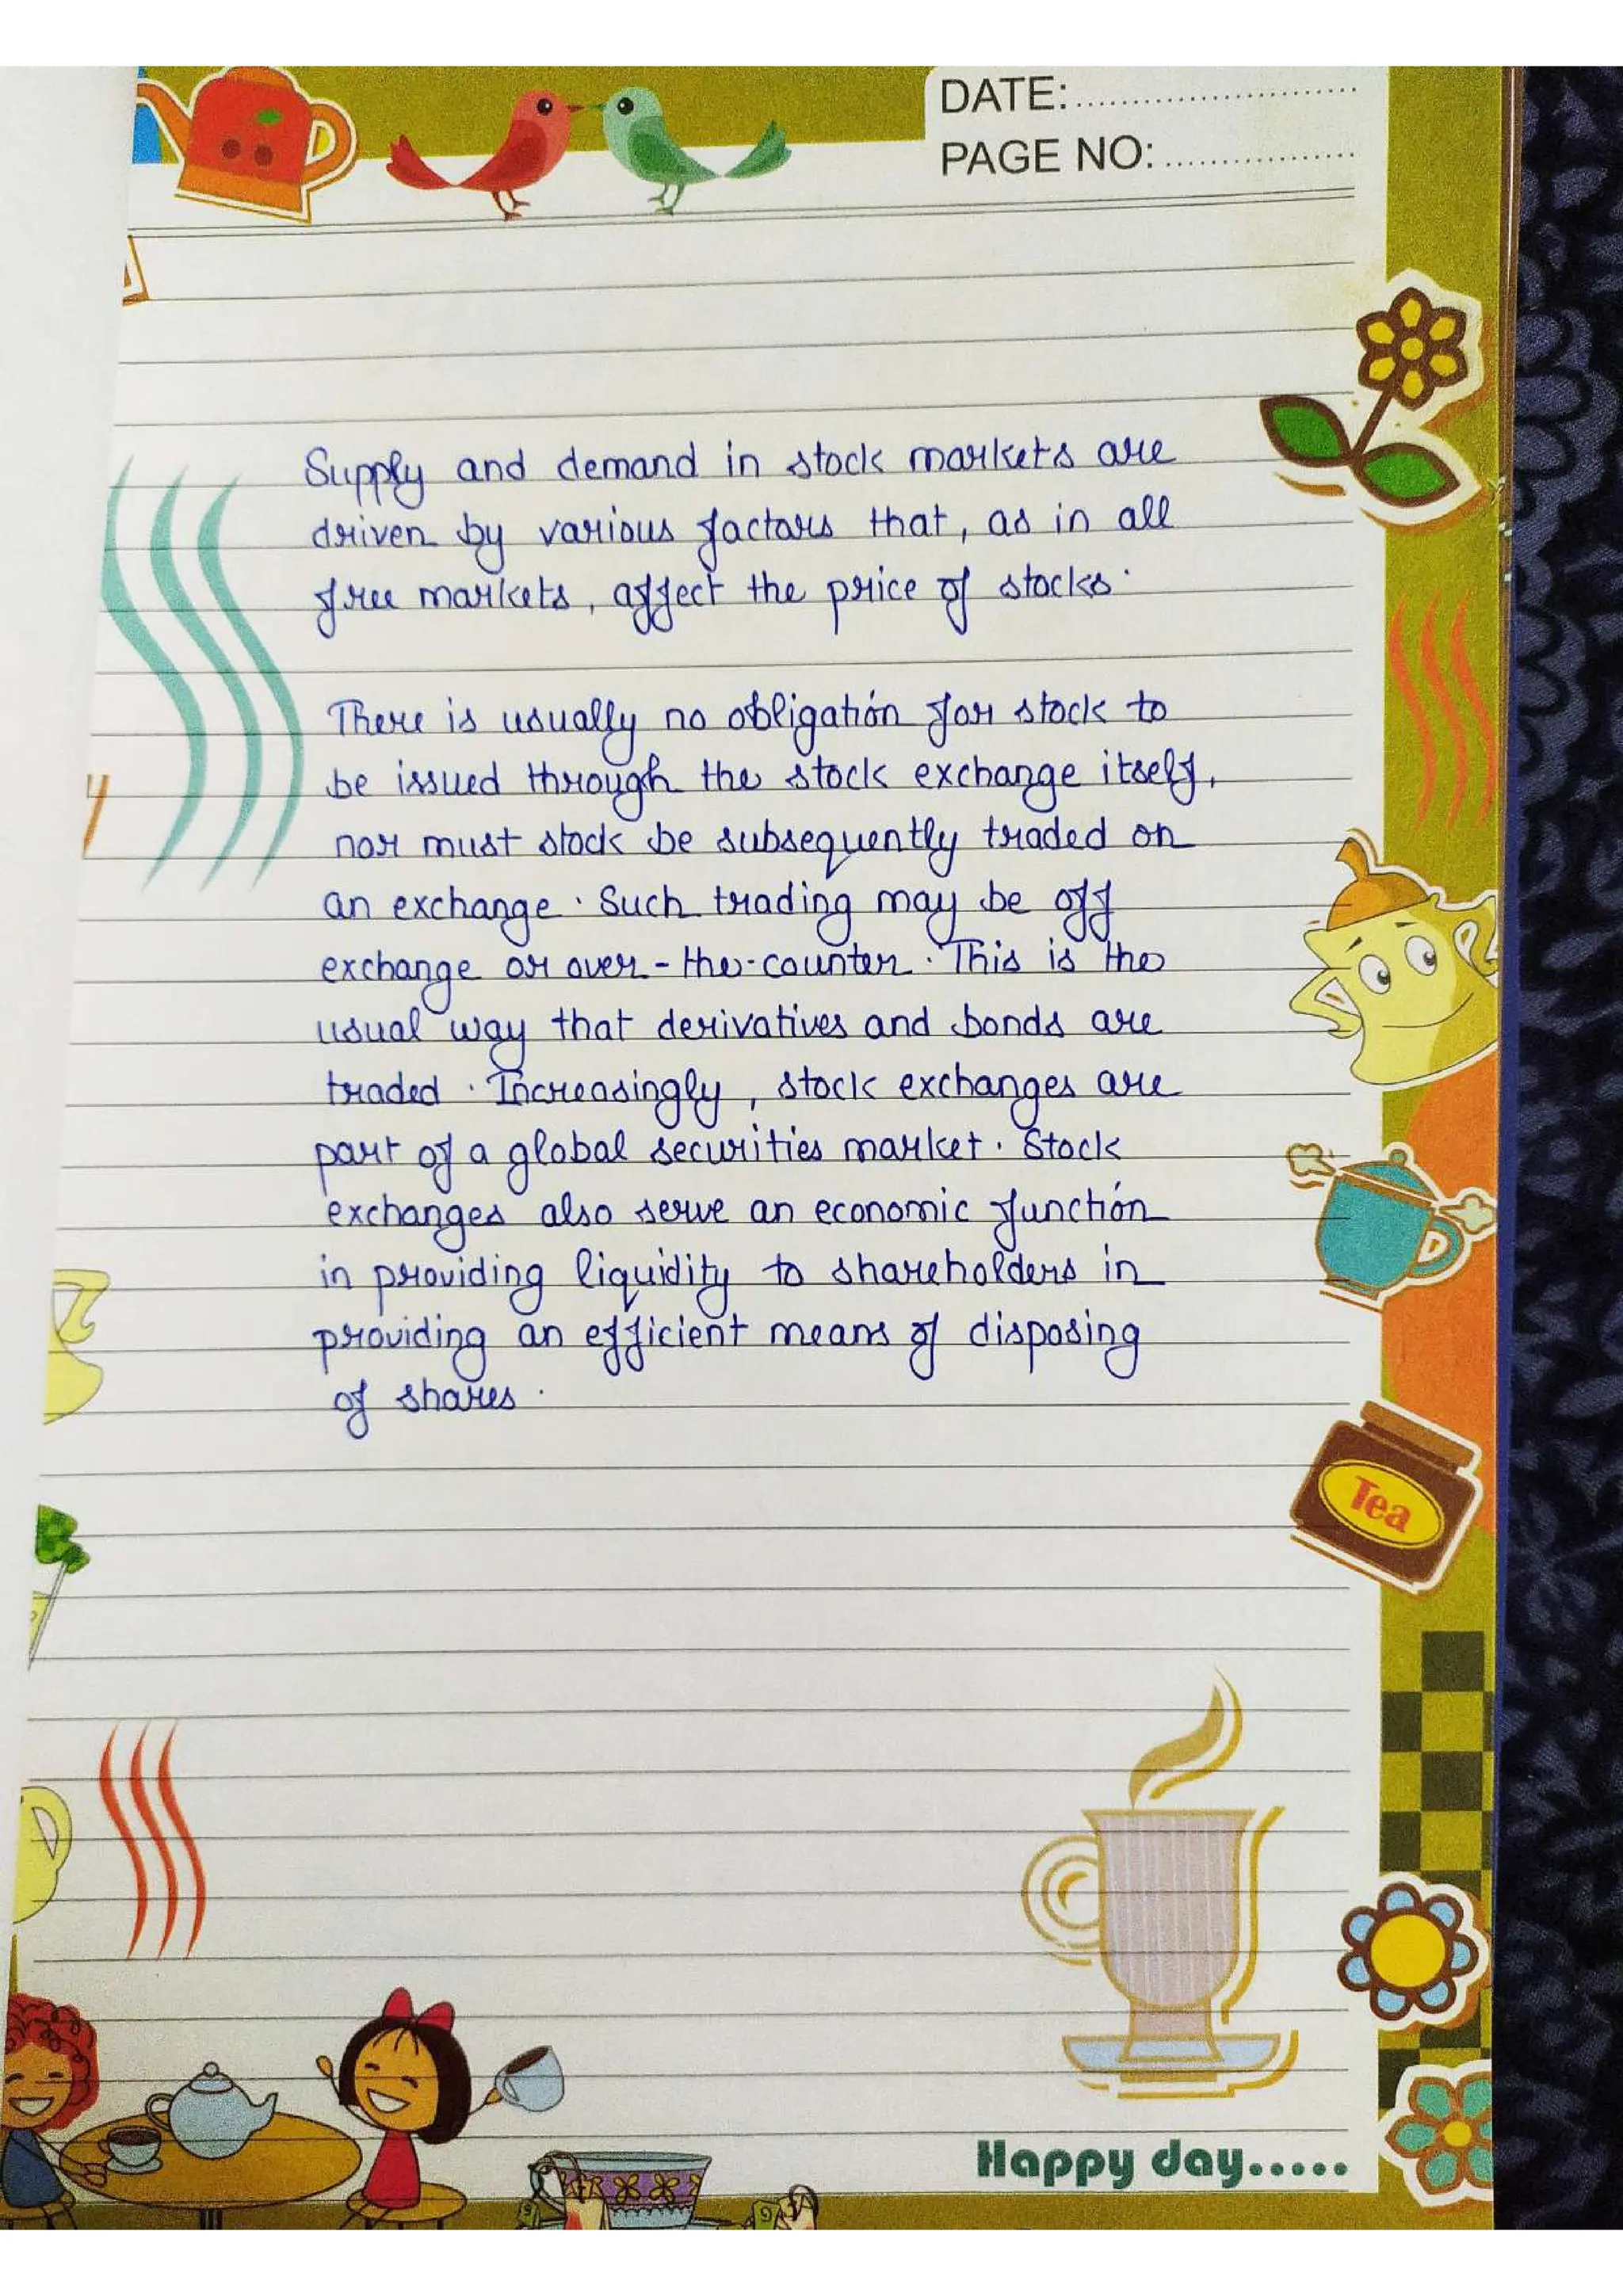 DATE:..........................
PAGE NO:..................
Supply and demand in stock markets are
driven by various factors that, as in all
free markets, affect the price of stocks.
There is usually no obligation for stock to
be issued through the stock exchange itself,
nor must stock be subsequently traded on
an exchange. Such trading may be off
exchange or over-the-counter. This is the
usual way that derivatives and bonds are
traded. Increasingly, stock exchanges are
part of a global securities market. Stock
exchanges also serve an economic function
in providing liquidity to shareholders in
providing an efficient means of disposing
of shares.
Tea
Happy day.....